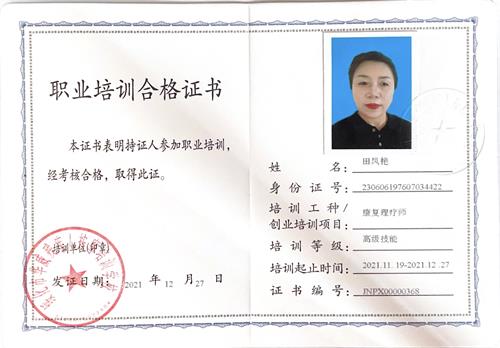 职业培训合格证书
本证书表明持证人参加职业培训，
经考核合格，取得此证。
培训单位(印章)
发证日期：2021 年 12 月 27 日
姓名：田凤艳
身份证号：230606197607034422
培训工种/
创业培训项目：康复理疗师
培训等级：高级技能
培训起止时间：2021.11.19-2021.12.27
证书编号：JNPX00000368